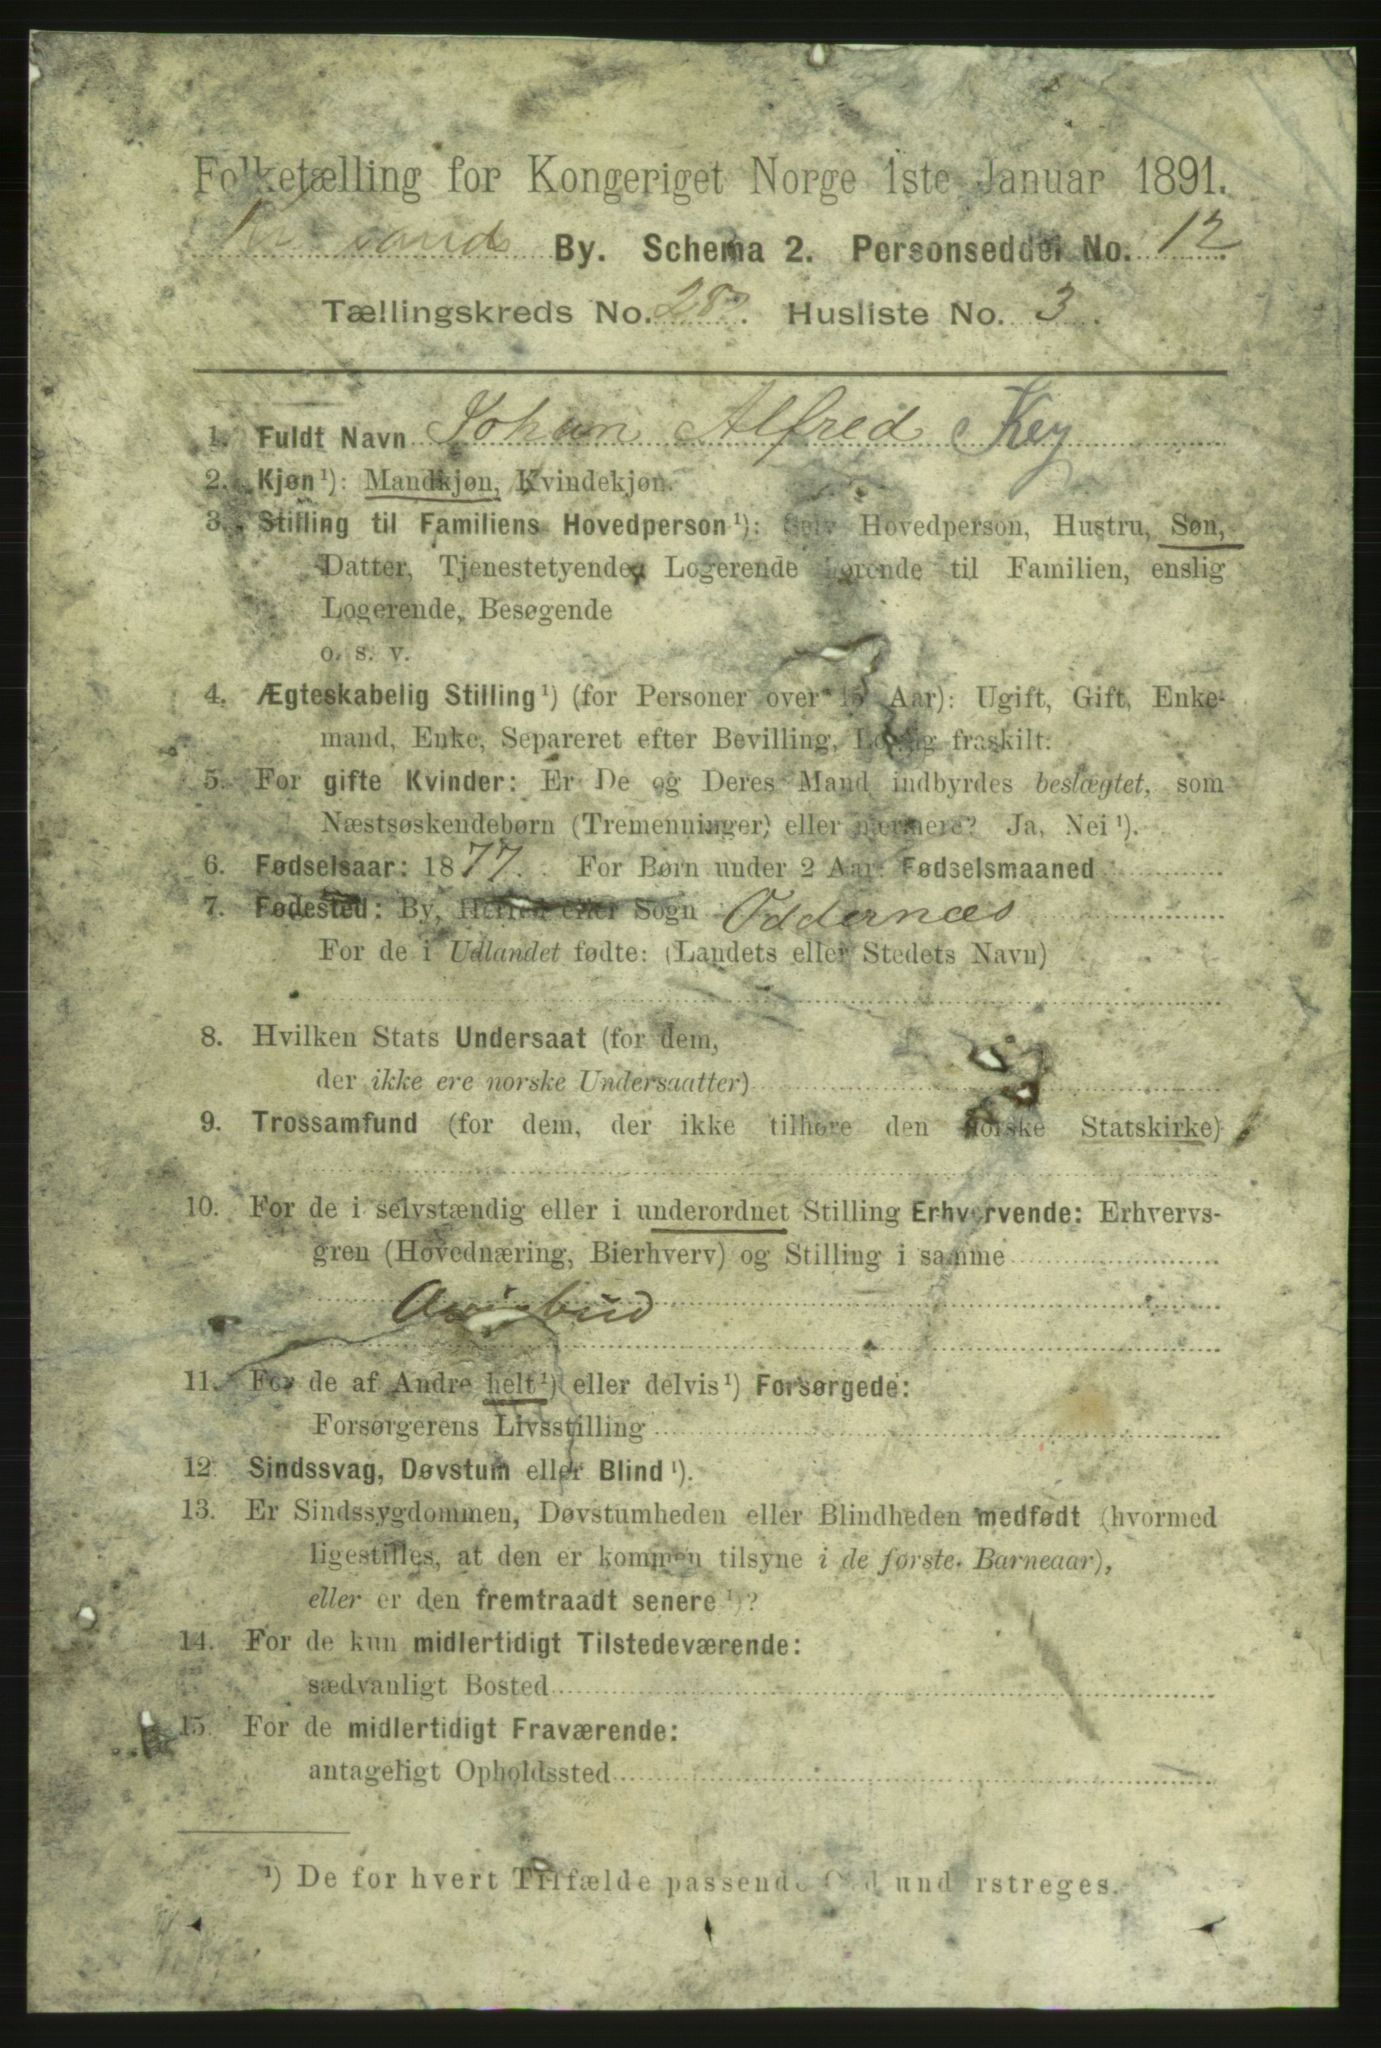 Folketælling for Kongeriget Norge 1ste Januar 1891.
By. Schema 2. Personseddel No. 12
Tællingskreds No. 28. Husliste No. 3.
1. Fuldt Navn Johan Alfred Key
2. Kjøn¹): Mandkjøn, Kvindekjøn.
3. Stilling til Familiens Hovedperson¹): Selv Hovedperson, Hustru, Søn,
Datter, Tjenestetyende, Logerende hørende til Familien, enslig
Logerende, Besøgende
o. s. v.
4. Ægteskabelig Stilling¹) (for Personer over 15 Aar): Ugift, Gift, Enke-
mand, Enke, Separeret efter Bevilling, Lovlig fraskilt:
5. For gifte Kvinder: Er De og Deres Mand indbyrdes beslægtet, som
Næstsøskendebørn (Tremenninger) eller nærmere? Ja, Nei¹).
6. Fødselsaar: 1877. For Børn under 2 Aar: Fødselsmaaned
7. Fødested: By, Herred eller Sogn Oddernæs
For de i Udlandet fødte: (Landets eller Stedets Navn)
8. Hvilken Stats Undersaat (for dem,
der ikke ere norske Undersaatter)
9. Trossamfund (for dem, der ikke tilhøre den norske Statskirke)
10. For de i selvstændig eller i underordnet Stilling Erhvervende: Erhvervs-
gren (Hovednæring, Bierhverv) og Stilling i samme
Avisbud
11. For de af Andre helt¹) eller delvis¹) Forsørgede:
Forsørgerens Livsstilling
12. Sindssvag, Døvstum eller Blind¹).
13. Er Sindssygdommen, Døvstumheden eller Blindheden medfødt (hvormed
ligestilles, at den er kommen tilsyne i de første Barneaar),
eller er den fremtraadt senere¹)?
14. For de kun midlertidigt Tilstedeværende:
sædvanligt Bosted
15. For de midlertidigt Fraværende:
antageligt Opholdssted
¹) De for hvert Tilfælde passende Ord understreges.